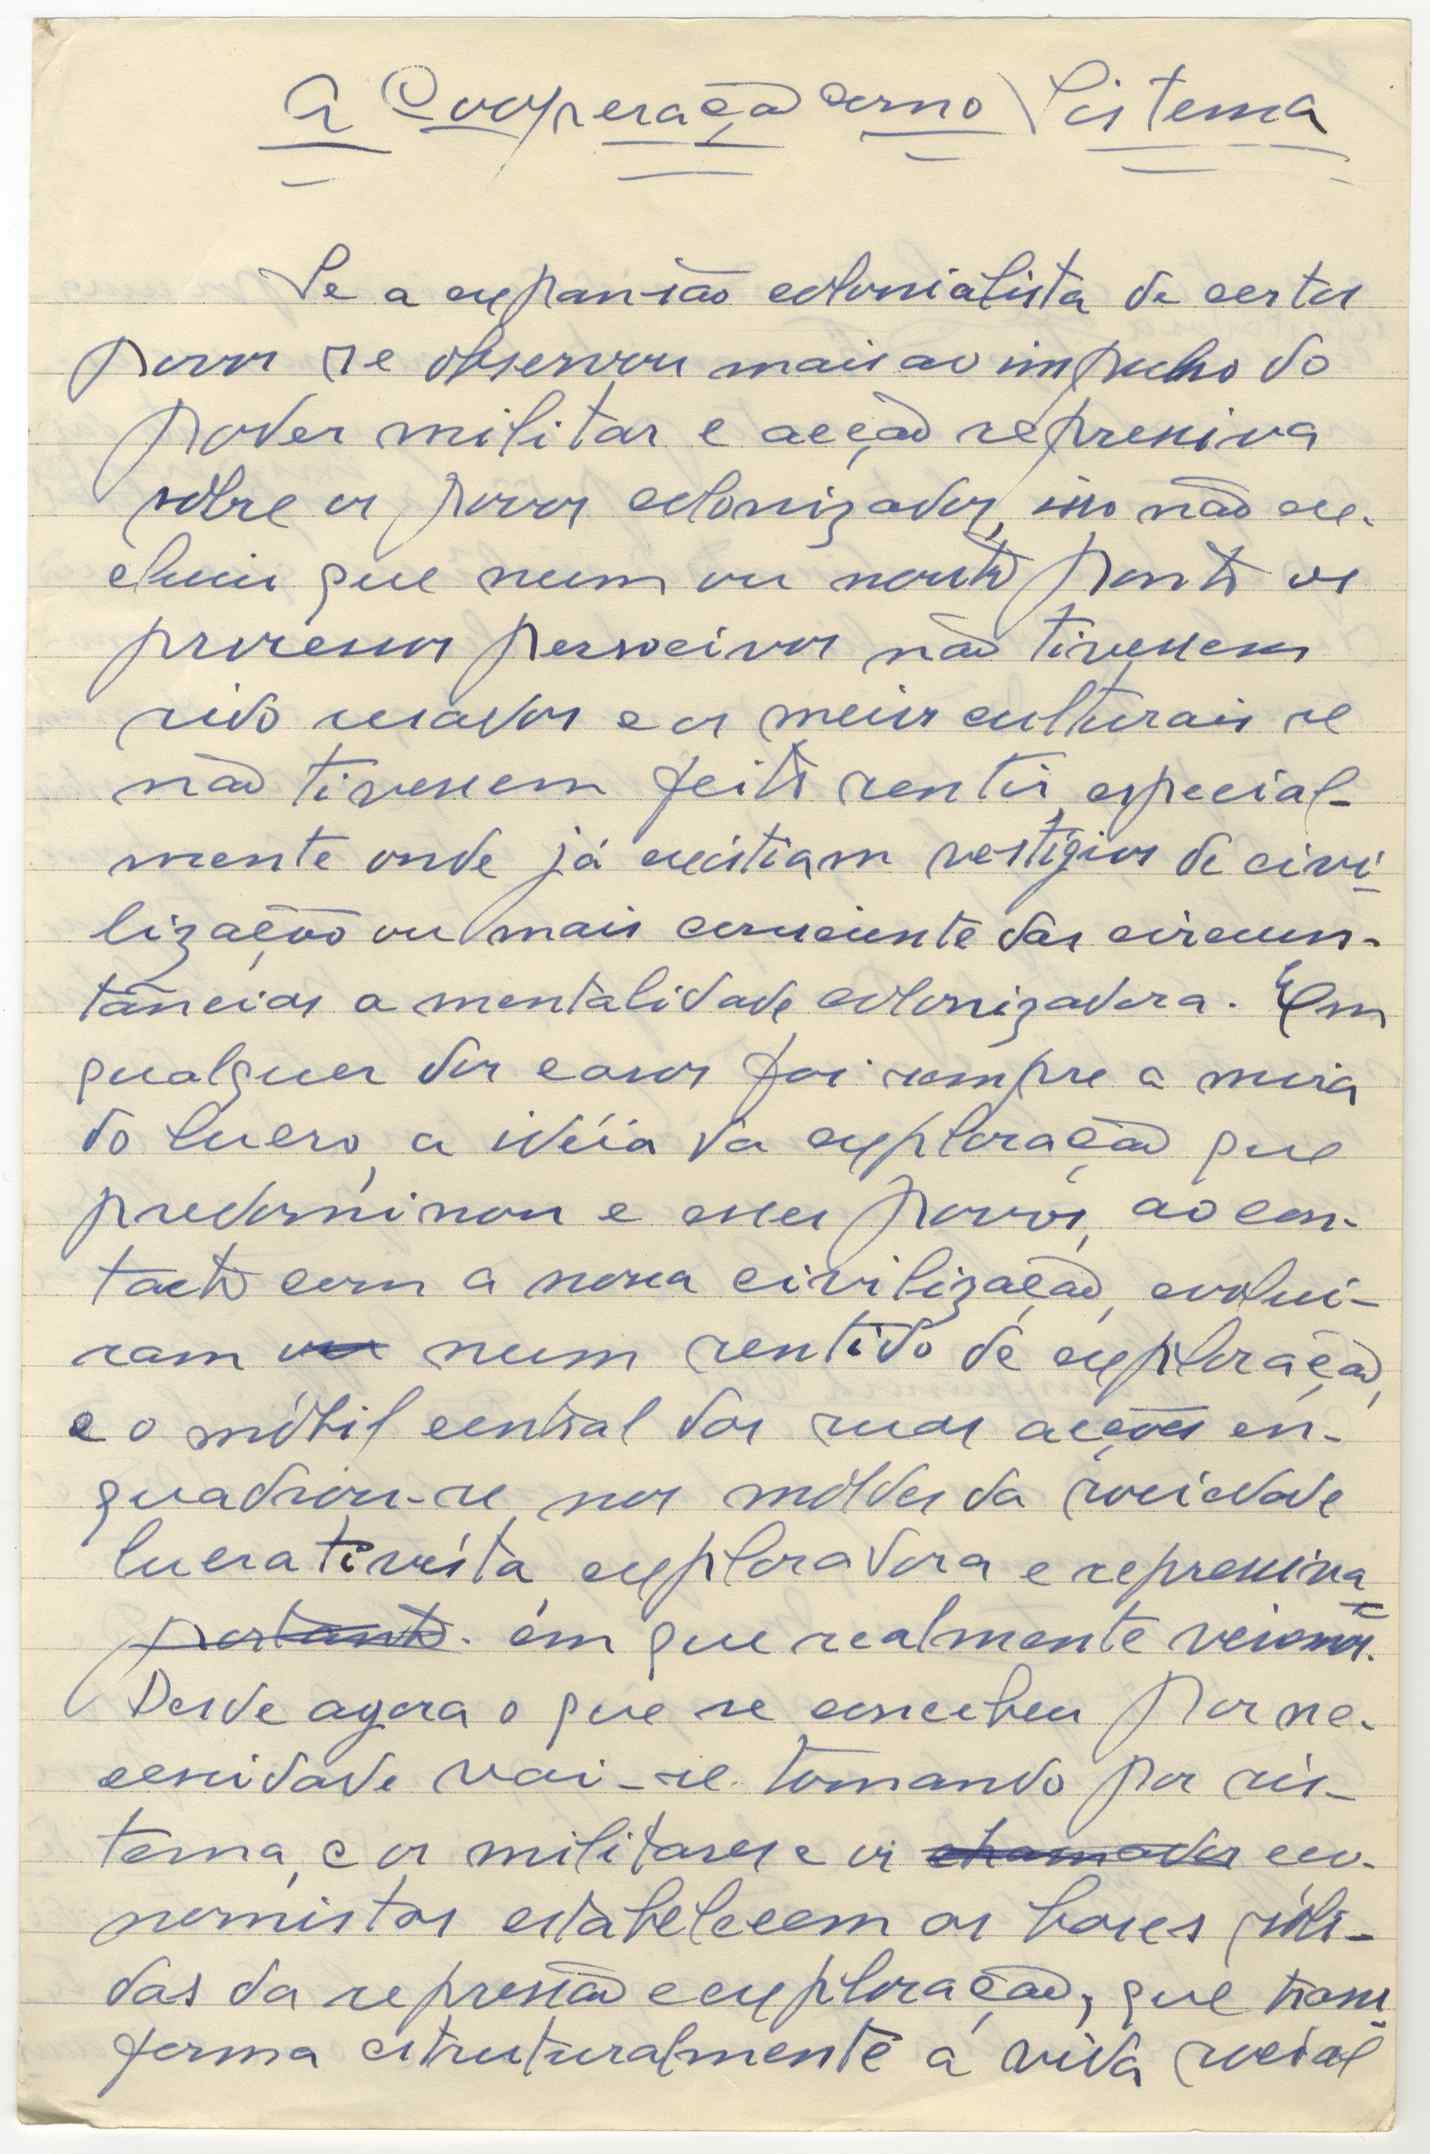 A Cooperação como Sistema
Se a expansão colonialista de certos
povos se observou mais ao impulso do
poder militar e acção repressiva
sôbre os povos colonizados, isso não ex-
cluiu que num ou noutro ponto os
processos persuasivos não tivessem
sido usados e os meios culturais se
não tivessem feito sentir, especial-
mente onde já existiam vestígios de civi-
lização ou mais consciente das circuns-
tâncias a mentalidade colonizadora. Em
qualquer dos casos foi sempre a mira
do lucro, a idéia da exploração que
predominou e esses povos, ao con-
tacto com a nossa civilização, evolui-
ram num sentido de exploração,
e o móbil central das suas acções en-
quadrou-se nos móldes da sociedade
lucrativista, exploradora e repressiva
portanto. em que realmente vivemos.
Desde agora o que se concebeu por ne-
cessidade vai-se tomando por sis-
tema, e os militares e os chamados eco-
nomistas estabelecem as bases sóli-
das da repressão e exploração, que trans
forma estruturalmente a vida social